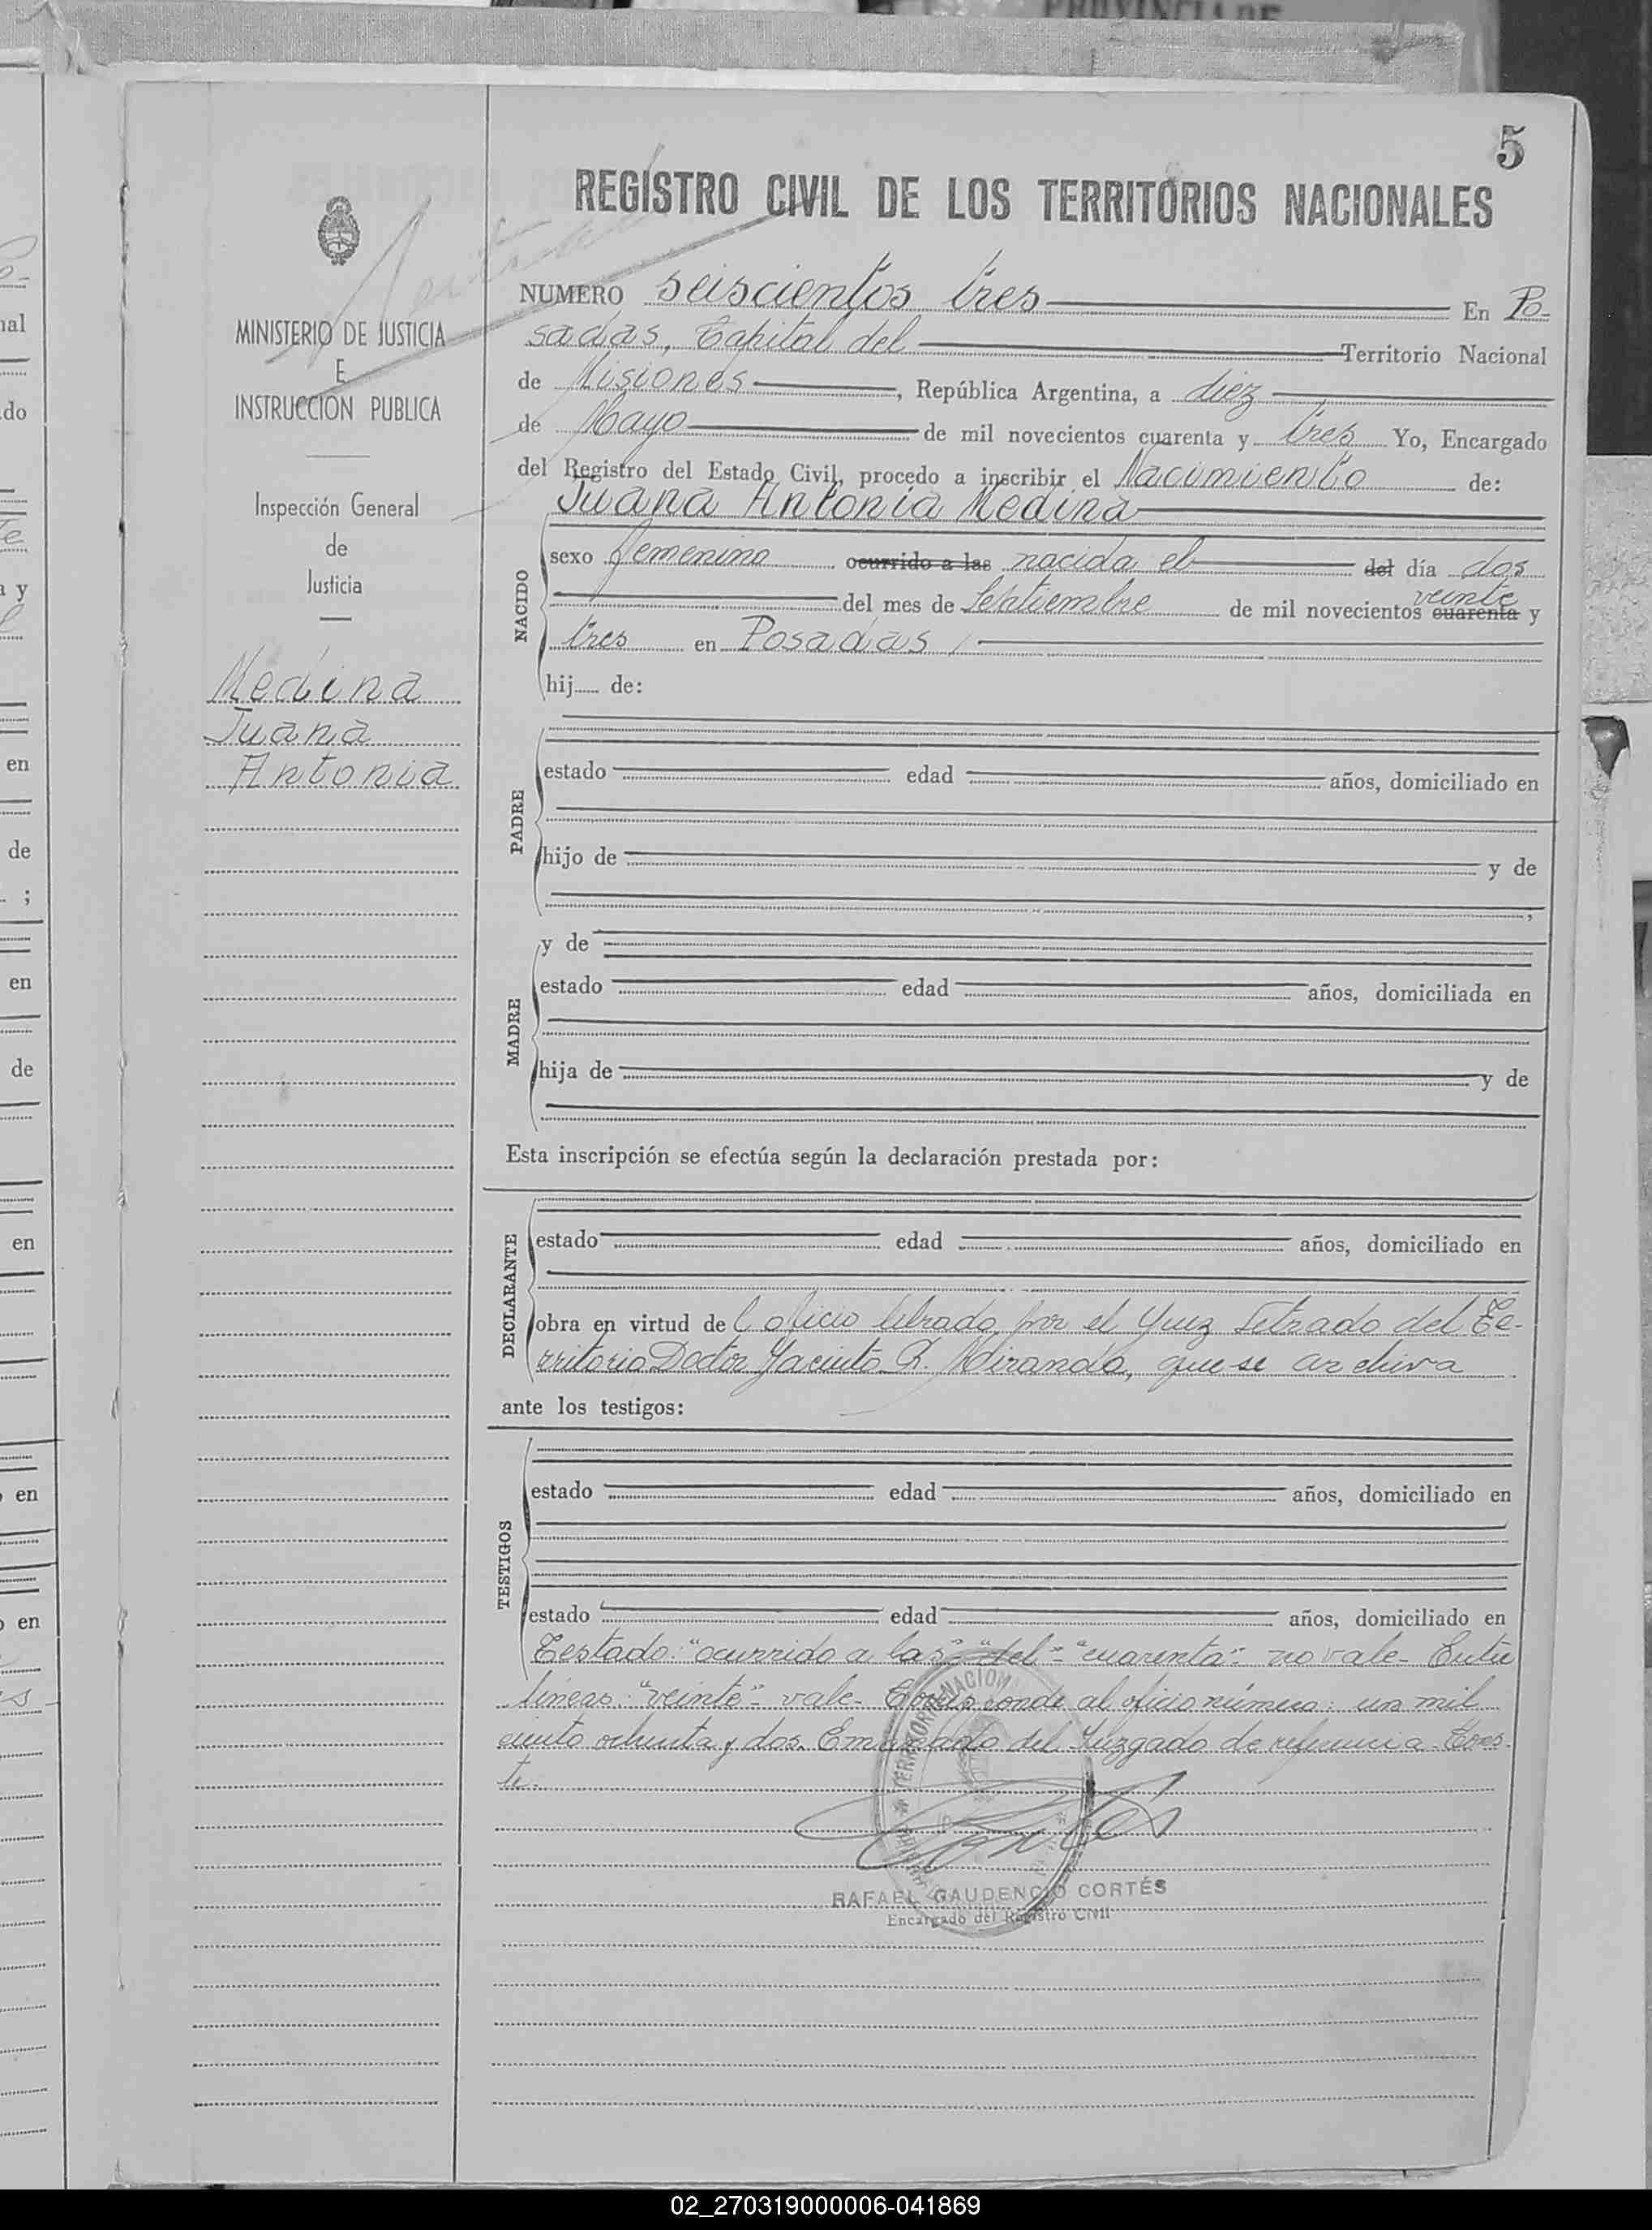 5
REGISTRO CIVIL DE LOS TERRITORIOS NACIONALES
MINISTERIO DE JUSTICIA
E
INSTRUCCION PUBLICA
Inspección General
de
Justicia
Medina
Juana
Antonia
NUMERO seiscientos tres En Po-
sadas, Capital del Territorio Nacional
de Misiones, República Argentina, a diez
de Mayo de mil novecientos cuarenta y tres Yo, Encargado
del Registro del Estado Civil, procedo a inscribir el Nacimiento de:
Juana Antonia Medina
NACIDO
sexo femenino ocurrido a las nacida el del día dos
del mes de Septiembre de mil novecientos veinte cuarenta y
tres en Posadas,
hij de:
PADRE
estado edad años, domiciliado en
hijo de y de
,
MADRE
y de
estado edad años, domiciliada en
hija de y de
Esta inscripción se efectúa según la declaración prestada por:
DECLARANTE
estado edad años, domiciliado en
obra en virtud de l oficio librado por el Juez Letrado del Te-
rritorio Doctor Jacinto R. Miranda, que se archiva
ante los testigos:
TESTIGOS
estado edad años, domiciliado en
estado edad años, domiciliado en
Testado: "ocurrido a las" "del" "cuarenta" no vale- Entre
líneas: "veinte" vale- Corresponde al oficio número: un mil
ciento ochenta y dos. Emanado del Juzgado de referencia. Cons-
te.
RAFAEL GAUDENCIO CORTÉS
Encargado del Registro Civil
02_270319000006-041869